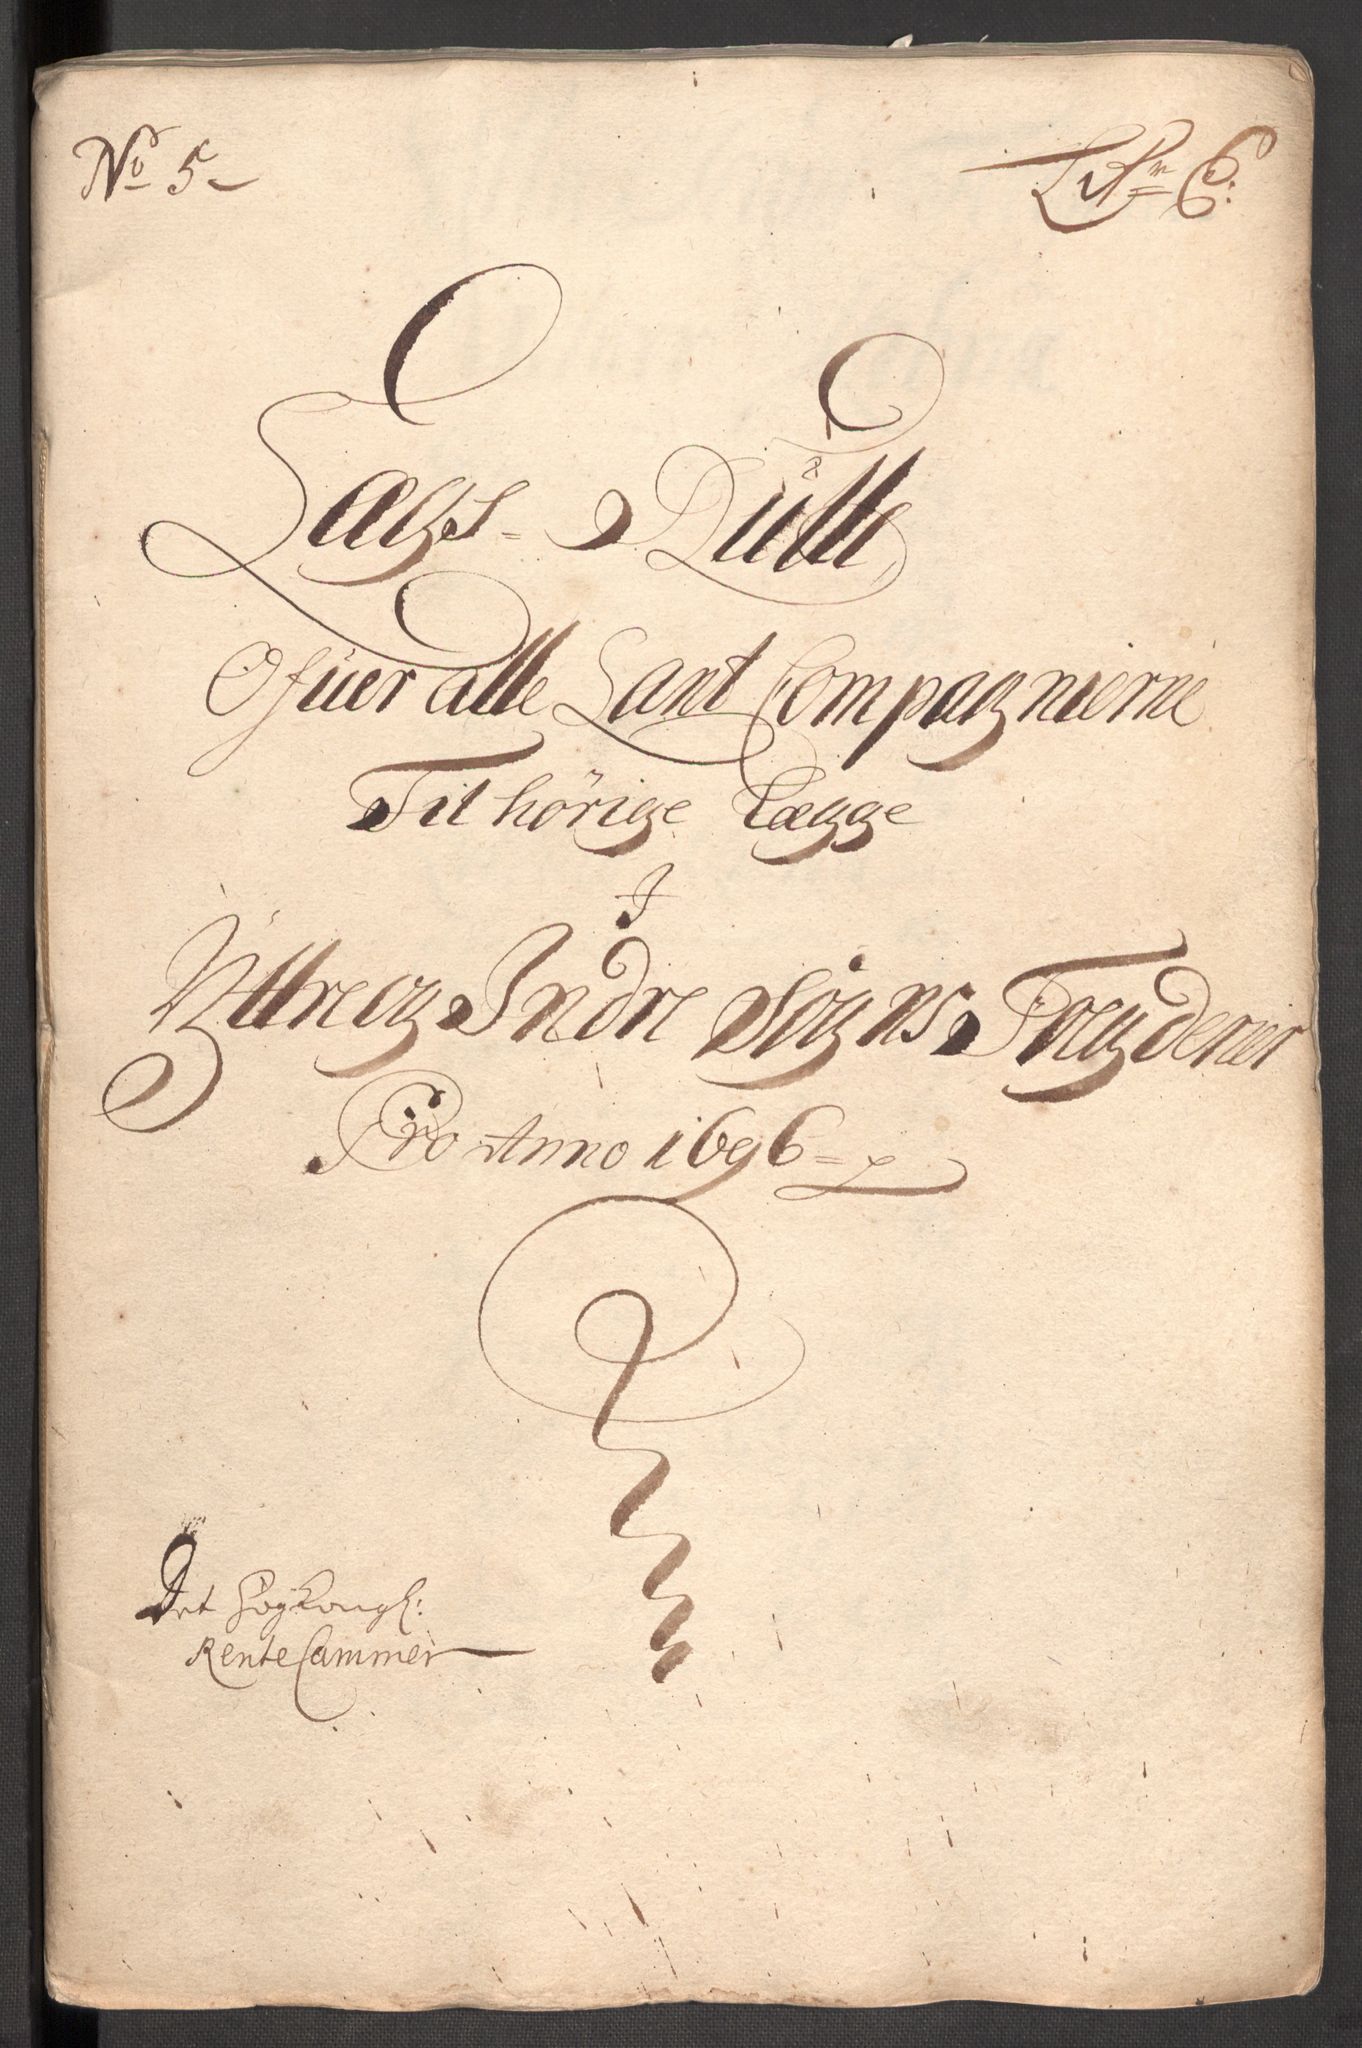 No 5
Litr C:
Lægs-Rulle
Ofuer alle Lant Compagnierne
Til hörige Lægge
I
Yttre og Indre Sogns Fougderier
Pro Anno 1696
Det Höy Kongl:
Rente Cammer